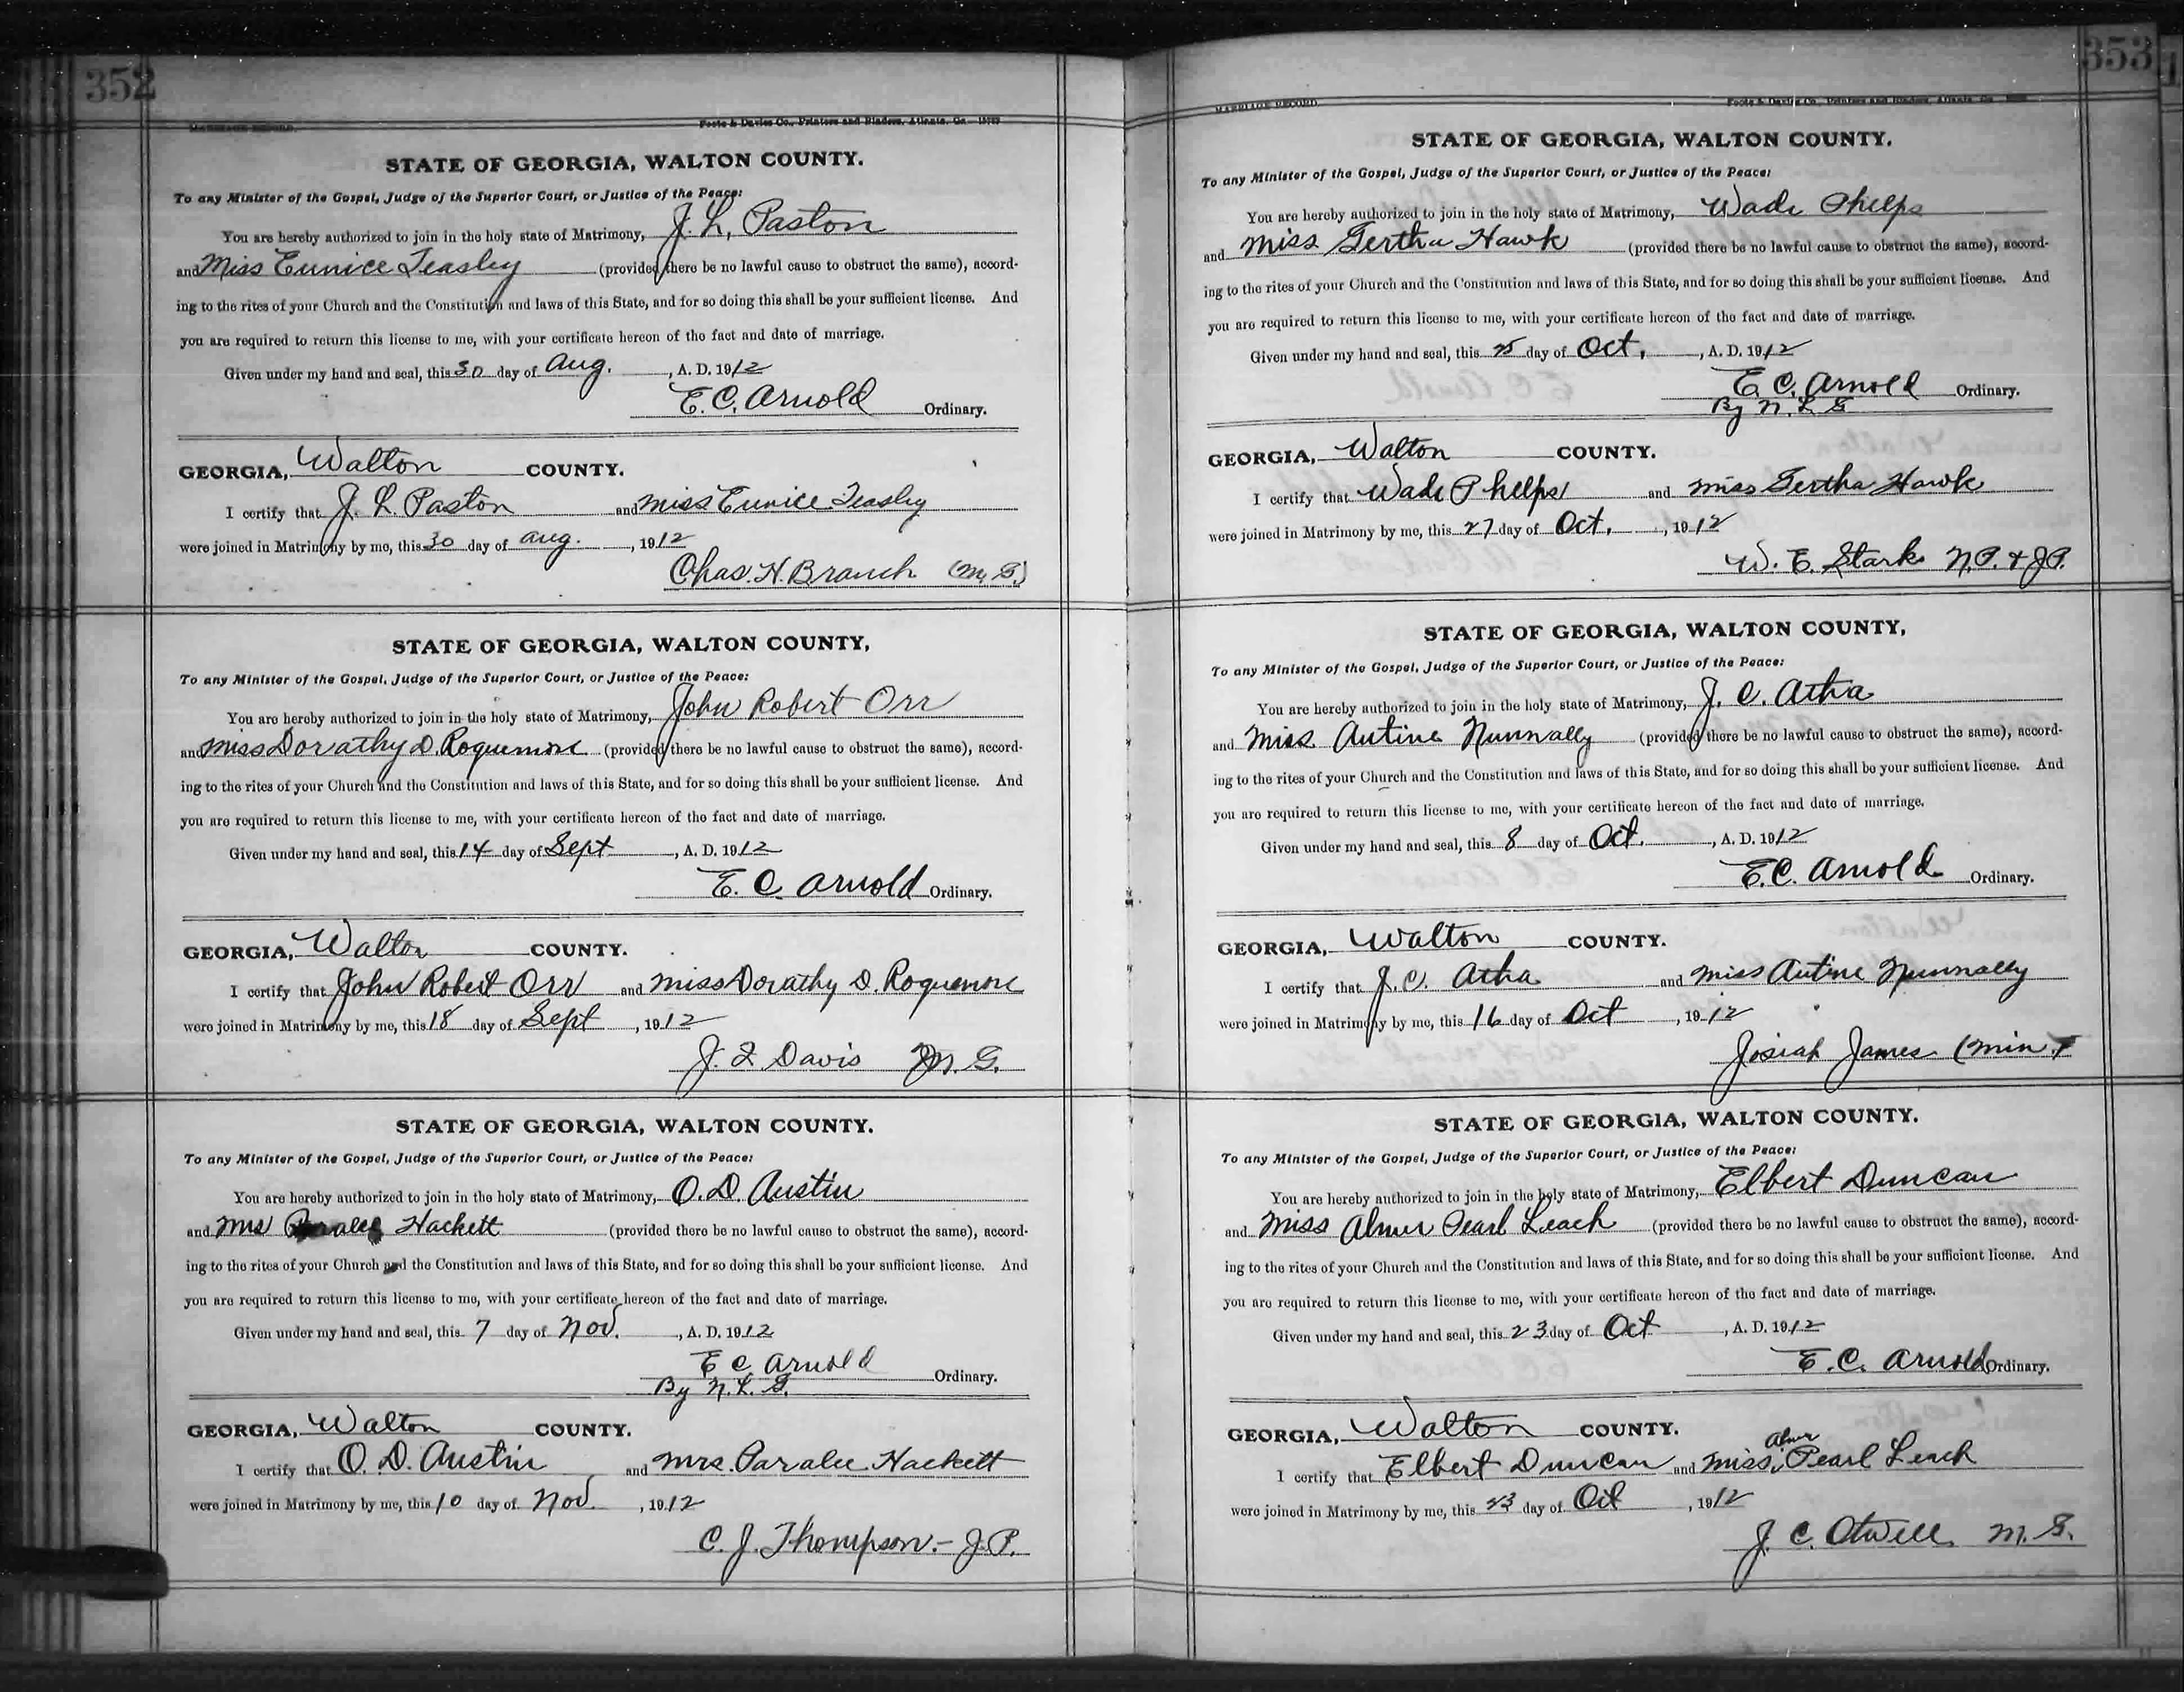 352
MARRIAGE RECORD.
Foote & Davies Co., Printers and Binders, Atlanta, Ga.
STATE OF GEORGIA, WALTON COUNTY.
To any Minister of the Gospel, Judge of the Superior Court, or Justice of the Peace:
You are hereby authorized to join in the holy state of Matrimony, J. L, Paston
and Miss Eunice Teasley (provided there be no lawful cause to obstruct the same), accord-
ing to the rites of your Church and the Constitution and laws of this State, and for so doing this shall be your sufficient license. And
you are required to return this license to me, with your certificate hereon of the fact and date of marriage.
Given under my hand and seal, this 30 day of Aug. , A. D. 1912
E. C. Arnold Ordinary.
GEORGIA, Walton COUNTY.
I certify that J. L. Paston and Miss Eunice Teasley
were joined in Matrimony by me, this 30 day of Aug. , 1912
Chas. H. Branch (M. G.)
STATE OF GEORGIA, WALTON COUNTY,
To any Minister of the Gospel, Judge of the Superior Court, or Justice of the Peace:
You are hereby authorized to join in the holy state of Matrimony, John Robert Orr
and Miss Dorathy D. Roquemore (provided there be no lawful cause to obstruct the same), accord-
ing to the rites of your Church and the Constitution and laws of this State, and for so doing this shall be your sufficient license. And
you are required to return this license to me, with your certificate hereon of the fact and date of marriage.
Given under my hand and seal, this 14 day of Sept , A. D. 1912
E. C. Arnold Ordinary.
GEORGIA, Walton COUNTY.
I certify that John Robert Orr and Miss Dorathy D. Roquemore
were joined in Matrimony by me, this 18 day of Sept , 1912
J. F. Davis M. G.
STATE OF GEORGIA, WALTON COUNTY.
To any Minister of the Gospel, Judge of the Superior Court, or Justice of the Peace:
You are hereby authorized to join in the holy state of Matrimony, O. D. Austin
and Mrs Paralee Hackett (provided there be no lawful cause to obstruct the same), accord-
ing to the rites of your Church and the Constitution and laws of this State, and for so doing this shall be your sufficient license. And
you are required to return this license to me, with your certificate hereon of the fact and date of marriage.
Given under my hand and seal, this 7 day of Nov. , A. D. 1912
E C Arnold
By N. L. G. Ordinary.
GEORGIA, Walton COUNTY.
I certify that O. D. Austin and Mrs. Paralee Hackett
were joined in Matrimony by me, this 10 day of Nov. , 1912
C. J. Thompson.- J. P.
353
MARRIAGE RECORD.
Foote & Davies Co., Printers and Binders, Atlanta, Ga.
STATE OF GEORGIA, WALTON COUNTY.
To any Minister of the Gospel, Judge of the Superior Court, or Justice of the Peace:
You are hereby authorized to join in the holy state of Matrimony, Wade Phelps
and Miss Gertha Hawk (provided there be no lawful cause to obstruct the same), accord-
ing to the rites of your Church and the Constitution and laws of this State, and for so doing this shall be your sufficient license. And
you are required to return this license to me, with your certificate hereon of the fact and date of marriage.
Given under my hand and seal, this 25 day of Oct. , A. D. 1912
E. C. Arnold Ordinary.
By N. L. G
GEORGIA, Walton COUNTY.
I certify that Wade Phelps and Miss Gertha Hawk
were joined in Matrimony by me, this 27 day of Oct. , 1912
W. E. Stark N. P. & J P.
STATE OF GEORGIA, WALTON COUNTY,
To any Minister of the Gospel, Judge of the Superior Court, or Justice of the Peace:
You are hereby authorized to join in the holy state of Matrimony, J. C. Atha
and Miss Autine Nunnally (provided there be no lawful cause to obstruct the same), accord-
ing to the rites of your Church and the Constitution and laws of this State, and for so doing this shall be your sufficient license. And
you are required to return this license to me, with your certificate hereon of the fact and date of marriage.
Given under my hand and seal, this 8 day of Oct. , A. D. 1912
E. C. Arnold Ordinary.
GEORGIA, Walton COUNTY.
I certify that J. C. Atha and Miss Autine Nunnally
were joined in Matrimony by me, this 16 day of Oct , 1912
Josiah James (Min.)
STATE OF GEORGIA, WALTON COUNTY.
To any Minister of the Gospel, Judge of the Superior Court, or Justice of the Peace:
You are hereby authorized to join in the holy state of Matrimony, Elbert Duncan
and Miss Almer Pearl Leach (provided there be no lawful cause to obstruct the same), accord-
ing to the rites of your Church and the Constitution and laws of this State, and for so doing this shall be your sufficient license. And
you are required to return this license to me, with your certificate hereon of the fact and date of marriage.
Given under my hand and seal, this 23 day of Oct , A. D. 1912
E. C. Arnold Ordinary.
GEORGIA, Walton COUNTY.
I certify that Elbert Duncan and Miss Almer Pearl Leach
were joined in Matrimony by me, this 23 day of Oct , 1912
J. C. Otwell M. G.